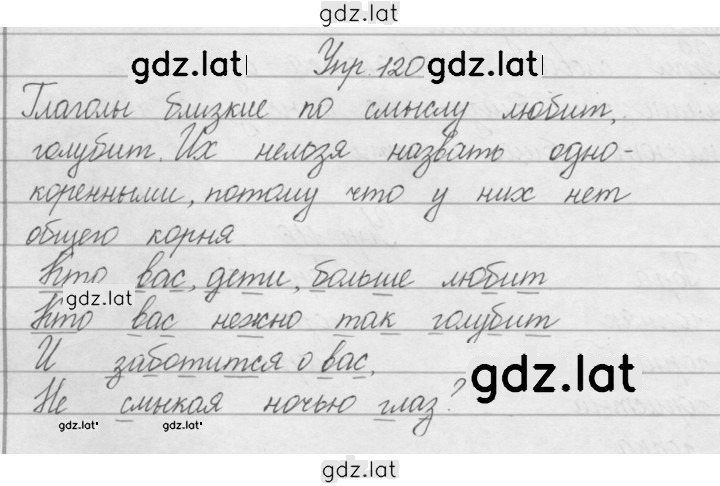 gdz.lat
gdz.lat Упр. 120 gdz.lat
Глаголы близкие по смыслу любит,
голубит. Их нельзя назвать одно-
коренными, потому что у них нет
общего корня.
Кто вас, дети, больше любит
gdz.lat
Кто вас нежно так голубит
И заботится о вас,
gdz.lat
Не смыкая ночью глаз?
gdz.lat gdz.lat
gdz.lat